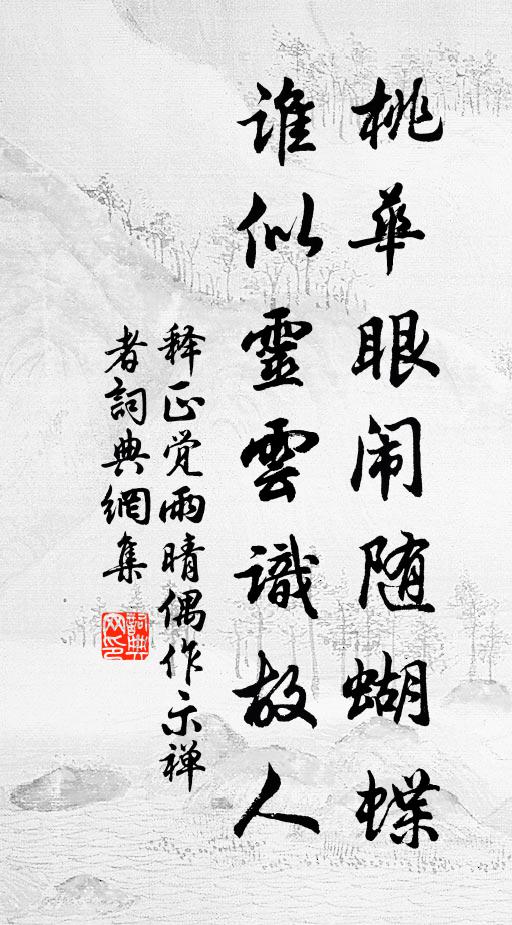 桃華眼闹随蝴蝶
谁似靈雲識故人
释正觉雨晴偶作示禅
者詞典網集
詞典网印